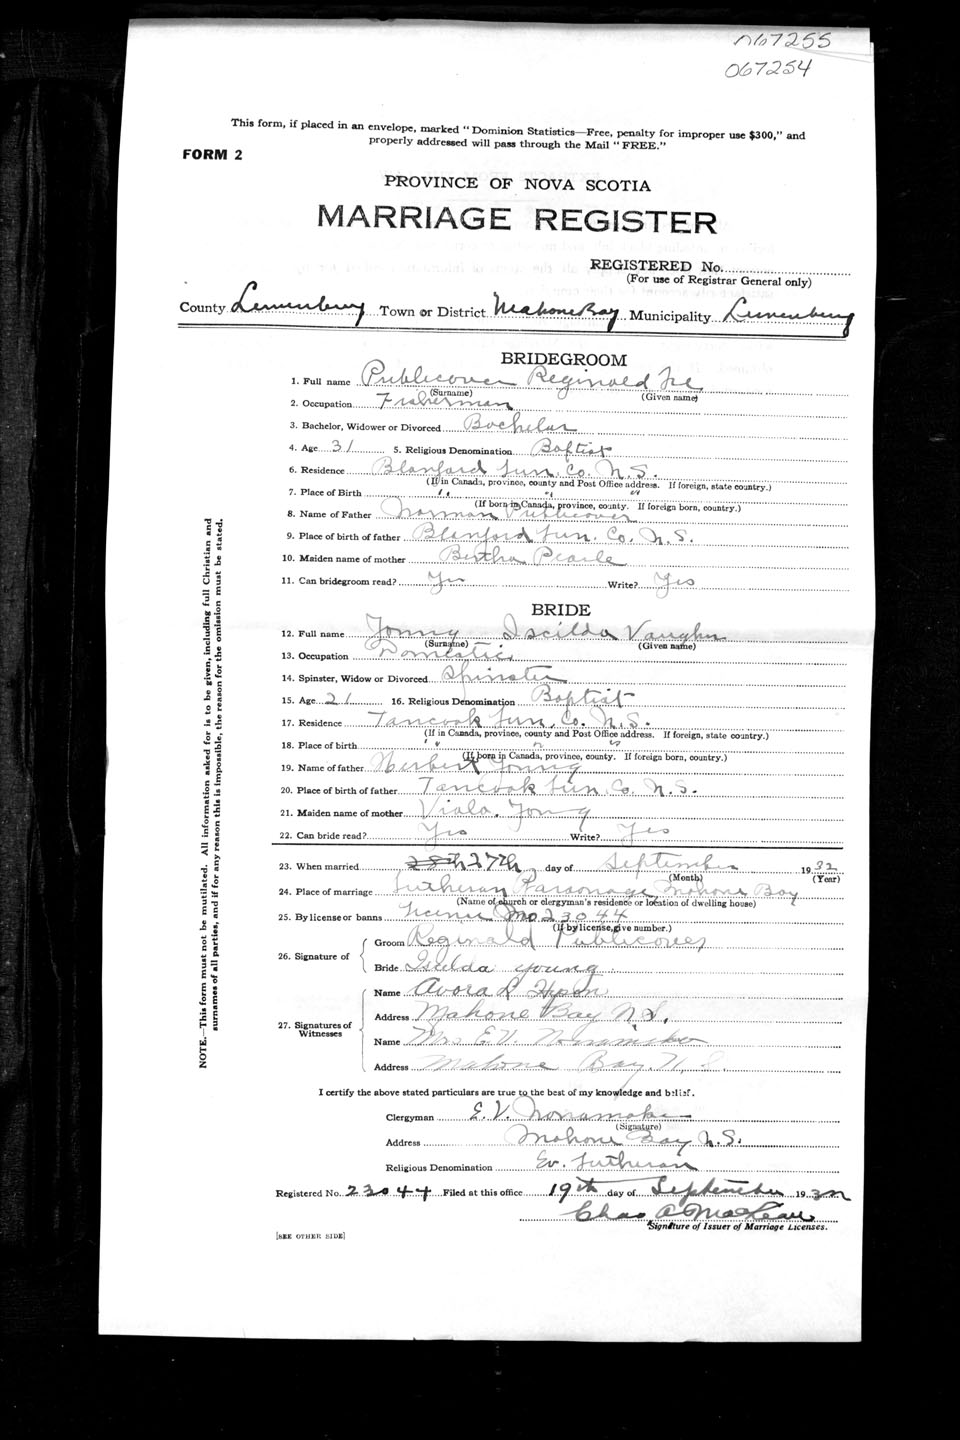 067255
067254
This form, if placed in an envelope, marked "Dominion Statistics—Free, penalty for improper use $300," and
properly addressed will pass through the Mail "FREE."
FORM 2
PROVINCE OF NOVA SCOTIA
MARRIAGE REGISTER
REGISTERED No.
(For use of Registrar General only)
County Lunenburg Town or District Mahone Bay Municipality Lunenburg
BRIDEGROOM
1. Full name Publicover Reginald
(Surname) (Given name)
2. Occupation Fisherman
3. Bachelor, Widower or Divorced Bachelor
4. Age 31 5. Religious Denomination Baptist
6. Residence Blanford Lun. Co. N.S.
(If in Canada, province, county and Post Office address. If foreign, state country.)
7. Place of Birth " " "
(If born in Canada, province, county. If foreign born, country.)
8. Name of Father Norman Publicover
9. Place of birth of father Blanford Lun. Co. N.S.
10. Maiden name of mother Bertha Pearle
11. Can bridegroom read? Yes Write? Yes
BRIDE
12. Full name Young Iscilda Vaughn
(Surname) (Given name)
13. Occupation Domestic
14. Spinster, Widow or Divorced Spinster
15. Age 21 16. Religious Denomination Baptist
17. Residence Tancook Lun. Co. N.S.
(If in Canada, province, county and Post Office address. If foreign, state country.)
18. Place of birth " " "
(If born in Canada, province, county. If foreign born, country.)
19. Name of father Herbert Young
20. Place of birth of father Tancook Lun. Co. N.S.
21. Maiden name of mother Viola Young
22. Can bride read? Yes Write? Yes
23. When married 28th 27th day of September 1932
(Month) (Year)
24. Place of marriage Lutheran Parsonage Mahone Bay
(Name of church or clergyman's residence or location of dwelling house)
25. By license or banns License No 23044
(If by license, give number.)
26. Signature of
Groom Reginald Publicover
Bride Iselda young
27. Signatures of Witnesses
Name Avora R
Address Mahone Bay N.S.
Name Mrs E.V. Nonamaker
Address Mahone Bay. N.S.
I certify the above stated particulars are true to the best of my knowledge and belief.
Clergyman E. V. Nonamaker
(Signature)
Address Mahone Bay N.S.
Religious Denomination Ev. Lutheran
Registered No. 23044 Filed at this office 19th day of September 1932
Chas A MacLean
Signature of Issuer of Marriage Licenses.
[SEE OTHER SIDE]
NOTE.—This form must not be mutilated. All information asked for is to be given, including full Christian and
surnames of all parties, and if for any reason this is impossible, the reason for the omission must be stated.